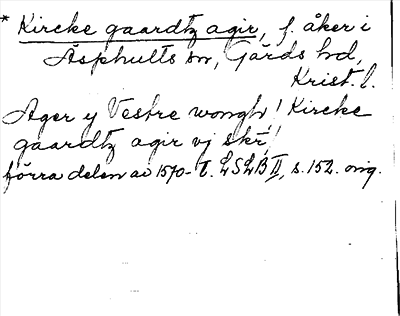 * Kircke gaardtz agir, f. åker i
Äsphults sn, Gärds hd,
Krist. l.
Ager y Vestre wongh! Kircke
gaardtz agir vj skr!
förra delen av 1570-t. LSLB II, s. 152. orig.